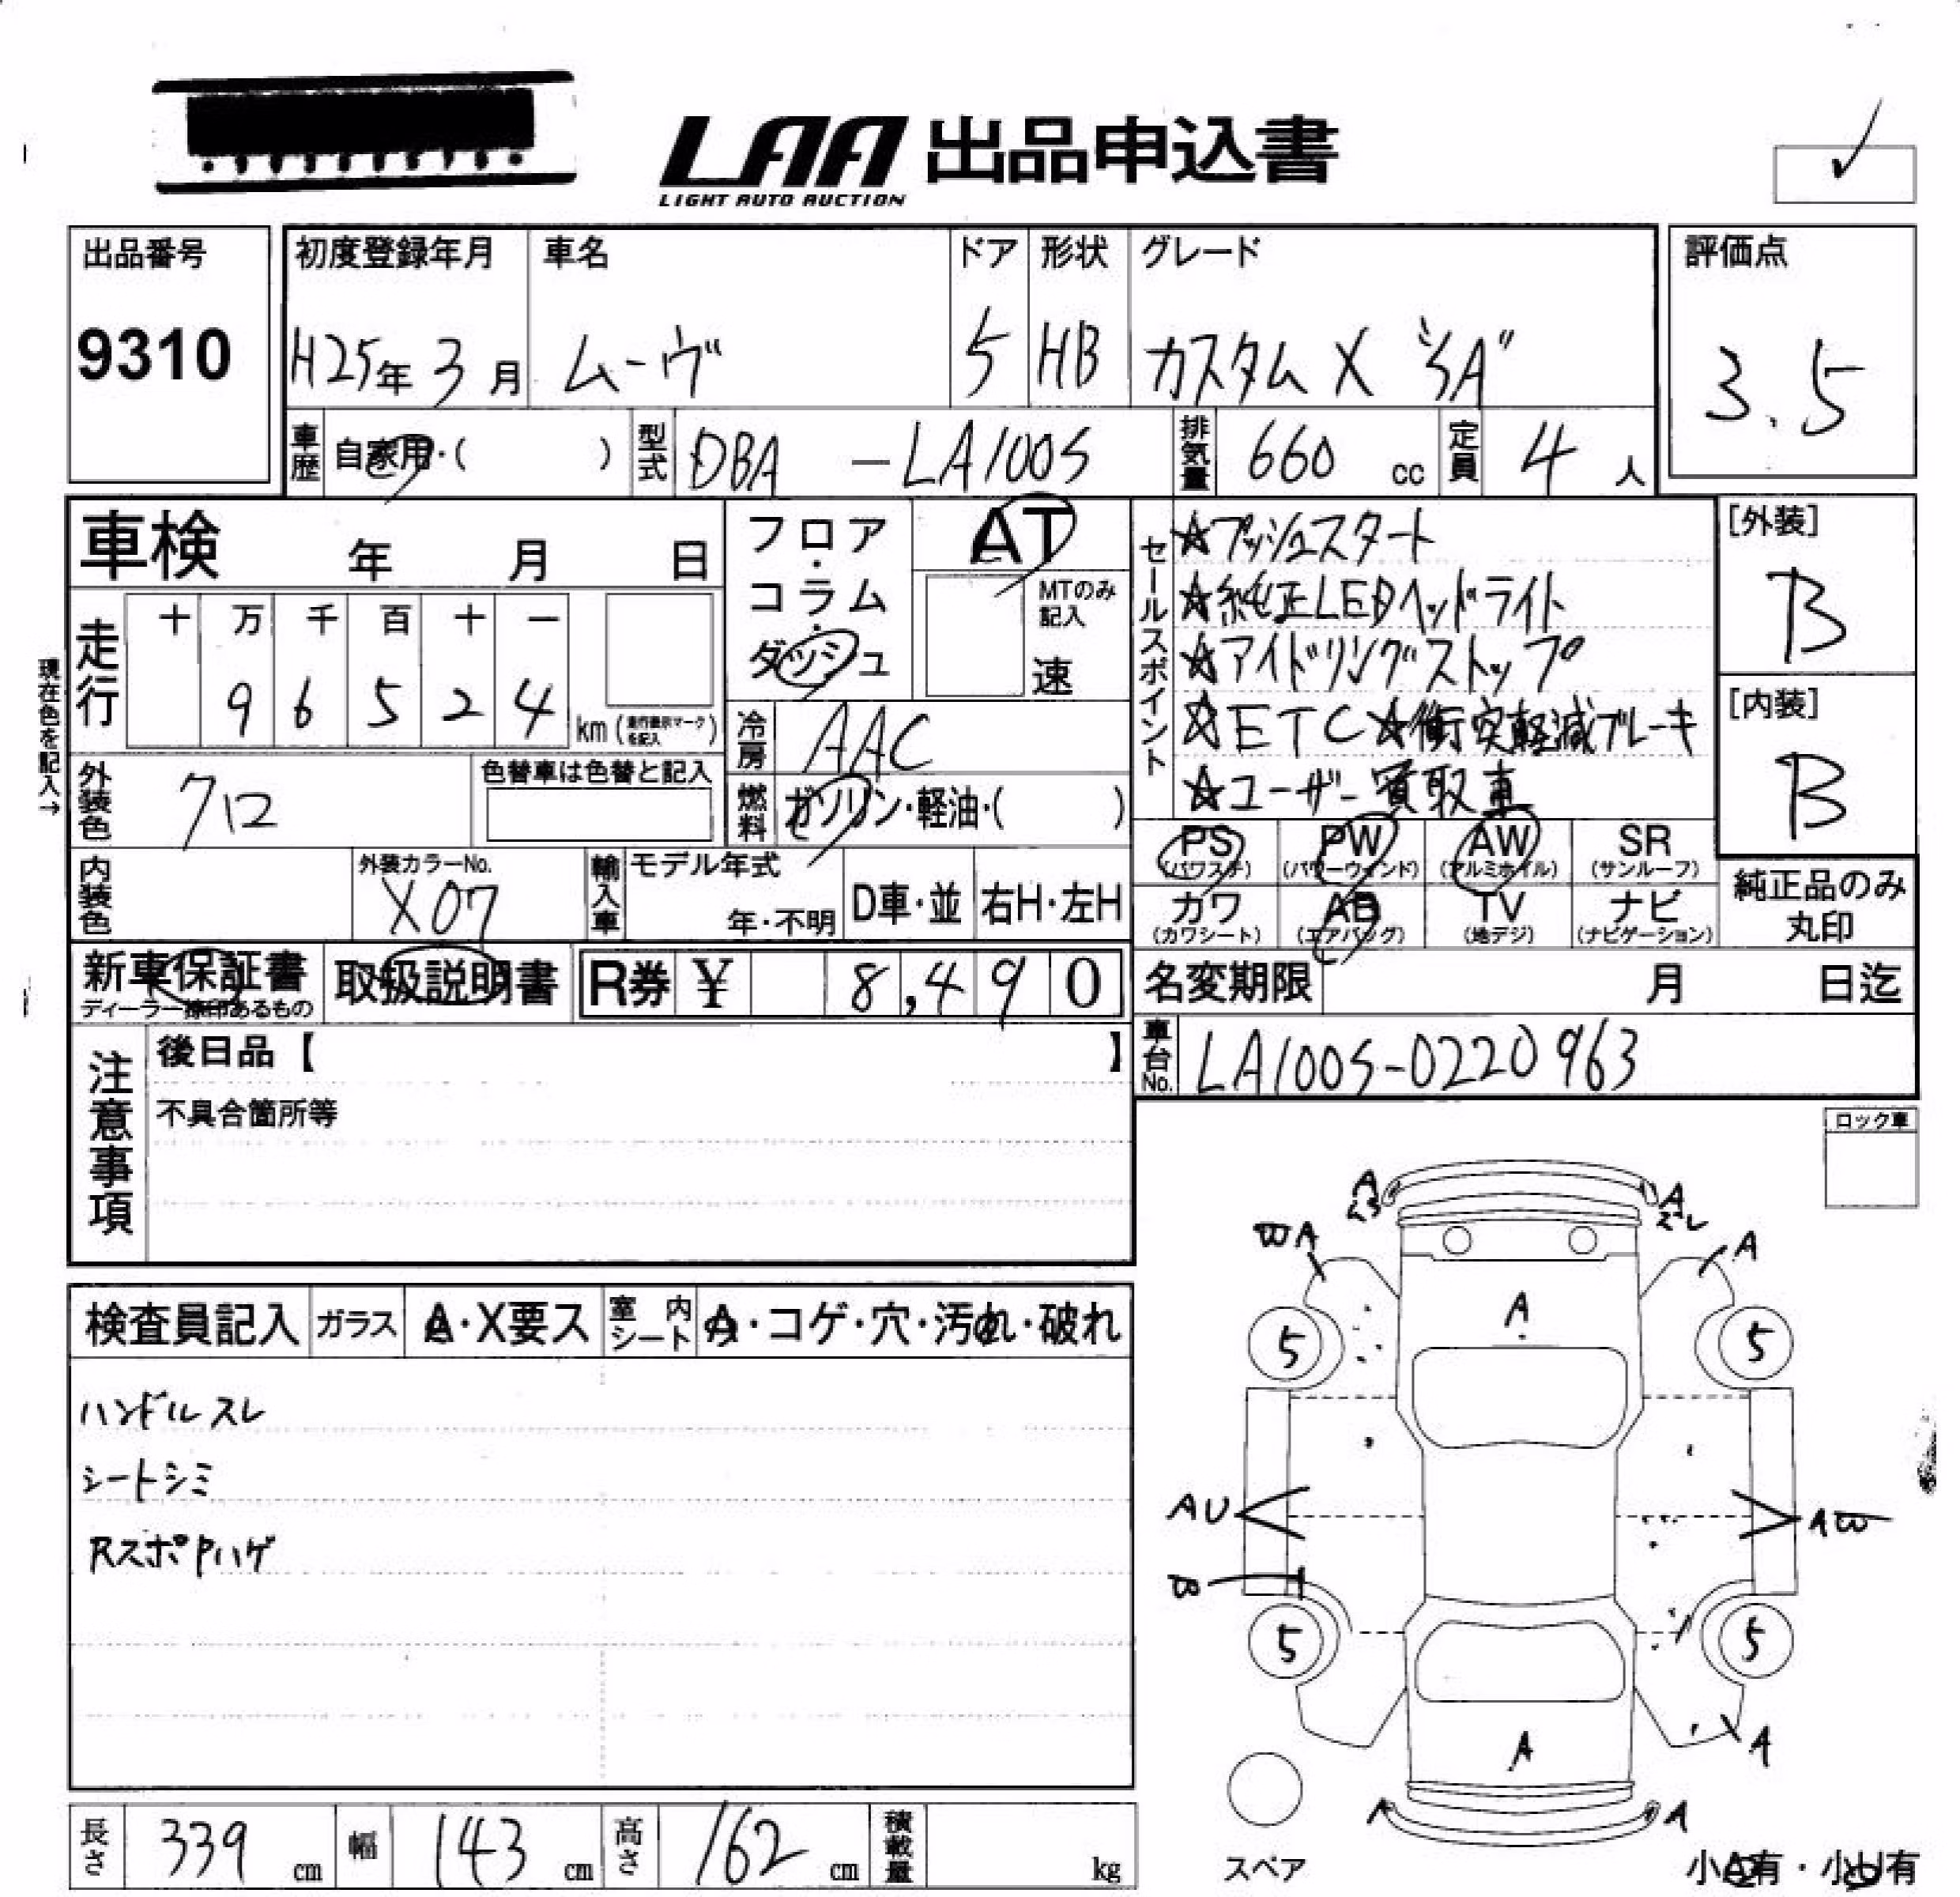 LAA 出品申込書
LIGHT AUTO AUCTION
出品番号 初度登録年月 車名 ドア 形状 グレード 評価点
9310 H25年 3月 ムーヴ 5 HB カスタム X "SA" 3.5
車歴 自家用・( ) 型式 DBA -LA100S 排気量 660 cc 定員 4 人
車検 年 月 日
フロア・コラム・ダッシュ
AT
MTのみ記入
速
セールスポイント
☆プッシュスタート
☆純正LEDヘッドライト
☆アイドリングストップ
☆ETC☆衝突軽減ブレーキ
☆ユーザー買取車
[外装]
B
[内装]
B
現在色を記入→
走行 十 万 千 百 十 一
9 6 5 2 4 km (走行表示マークを記入)
冷房 AAC
外装色 色替車は色替と記入
燃料 ガソリン・軽油・( )
内装色 外装カラーNo. X07
輸入車 モデル年式 年・不明 D車・並 右H・左H
PS (パワステ) PW (パワーウィンド) AW (アルミホイル) SR (サンルーフ)
カワ (カワシート) AB (エアバッグ) TV (地デジ) ナビ (ナビゲーション)
純正品のみ丸印
新車保証書 取扱説明書 R券 ¥ 8,490
ディーラー捺印あるもの
名変期限 月 日迄
車台No. LA100S-0220963
注意事項
後日品【 】
不具合箇所等
ロック車
検査員記入 ガラス A・X要ス 室内シート A・コゲ・穴・汚れ・破れ
ハンドルスレ
シートシミ
RスポPハゲ
A A
A
A
5 5
AU
5 5
A
A
A A
スペア
小A有・小U有
長さ 339 cm 幅 143 cm 高さ 162 cm 積載量 kg